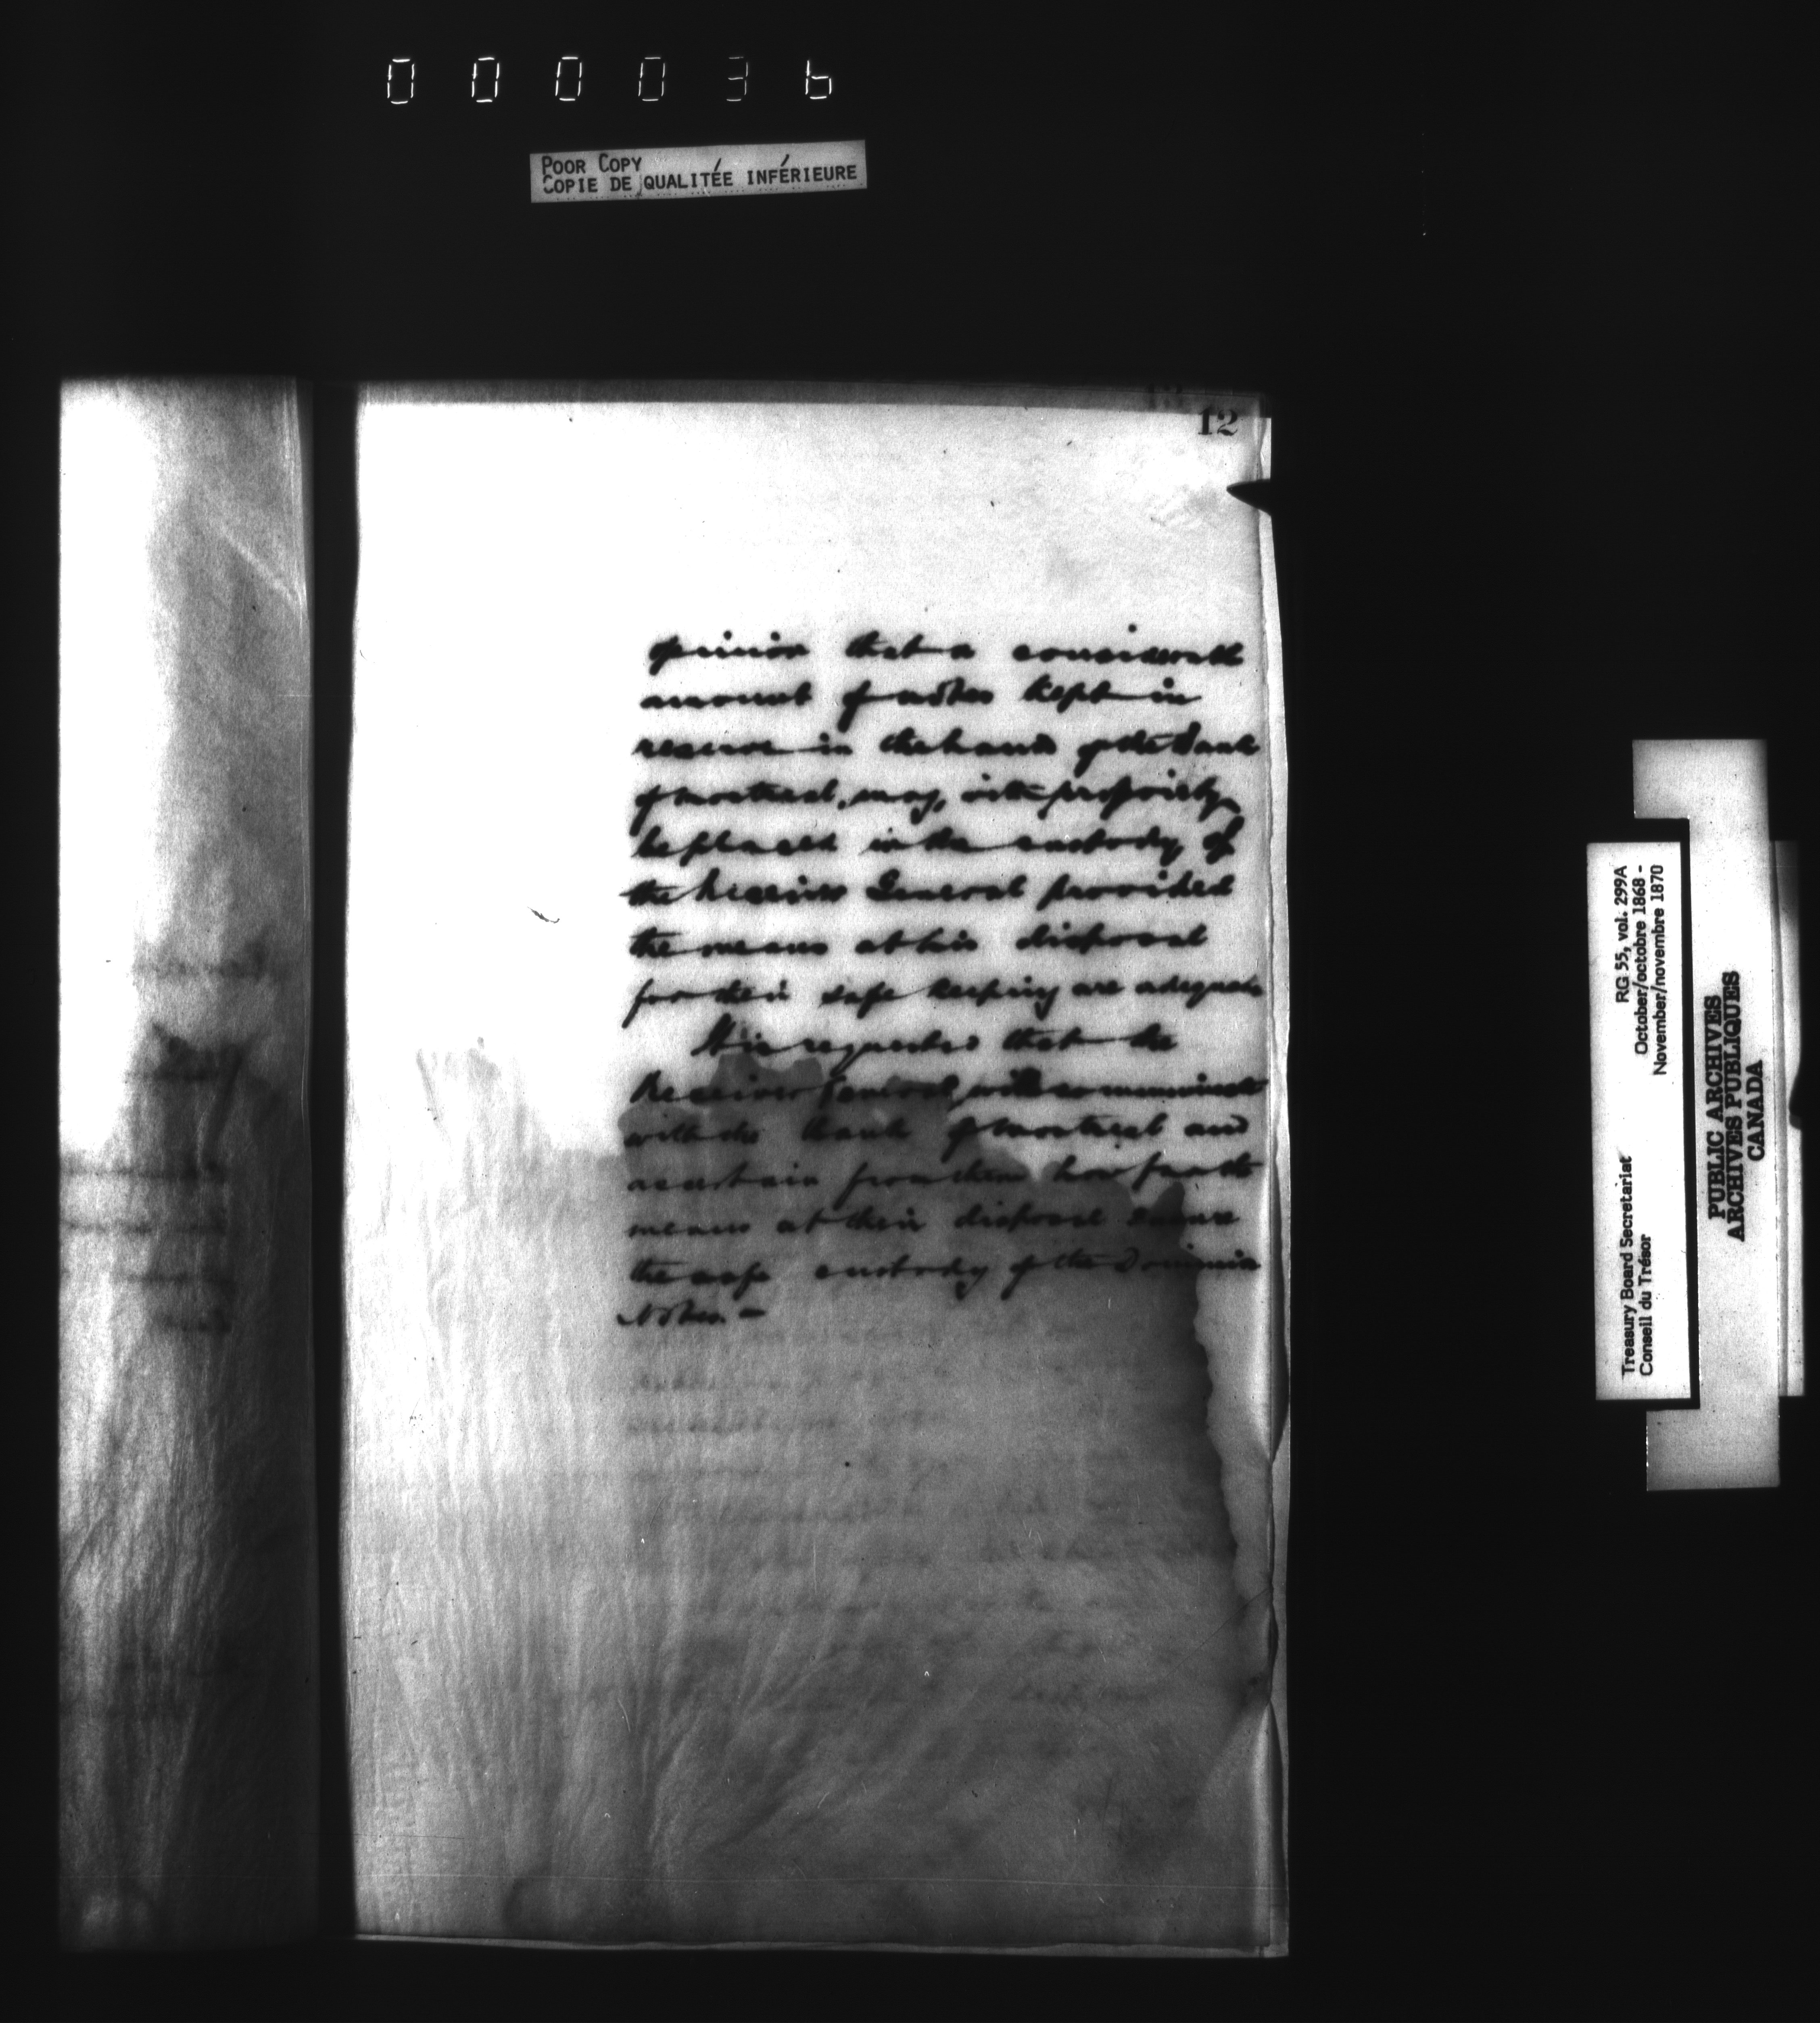 000036
POOR COPY
COPIE DE QUALITÉE INFÉRIEURE
12
opinion that a considerable
amount of notes kept in
reserve in the hands of the Bank
of Montreal, may, with propriety,
be placed in the custody of
the Receiver General provided
the means at his disposal
for their safe keeping are adequate
It is requested that the
Receiver General will communicate
with the Bank of Montreal and
ascertain from them how far the
means at their disposal secure
the safe custody of the Dominion
Notes. —
RG 55, vol. 299A
October/octobre 1868 -
November/novembre 1870
Treasury Board Secretariat
Conseil du Trésor
PUBLIC ARCHIVES
ARCHIVES PUBLIQUES
CANADA